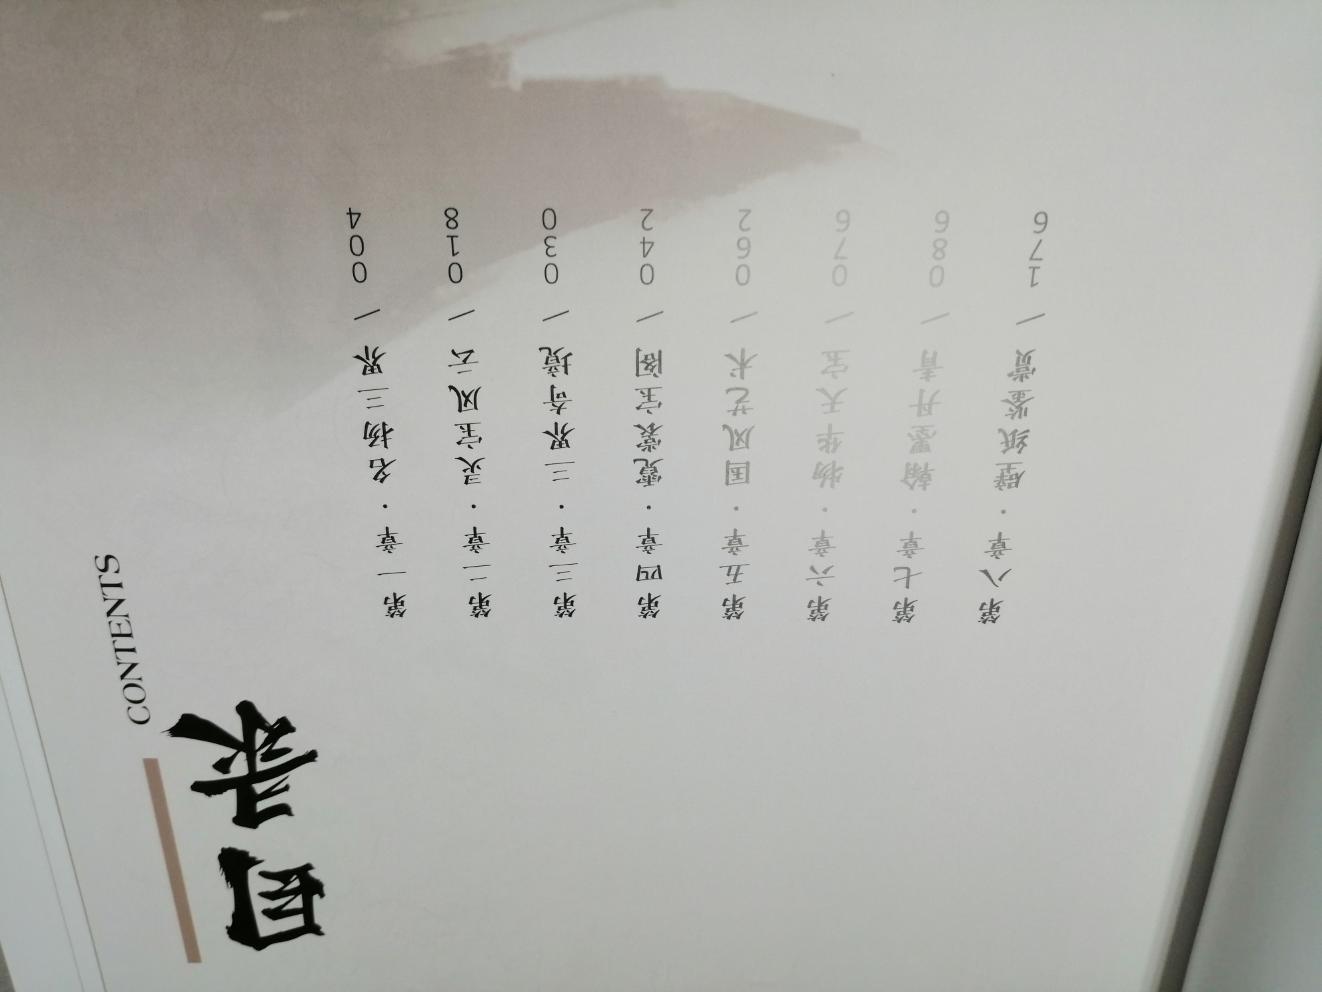 目录
CONTENTS
第一章·名扬三界 / 004
第二章·灵宝风云 / 018
第三章·三界奇境 / 030
第四章·霓裳宝阁 / 042
第五章·国风艺术 / 062
第六章·物华天宝 / 076
第七章·翰墨丹青 / 086
第八章·壁纸鉴赏 / 176